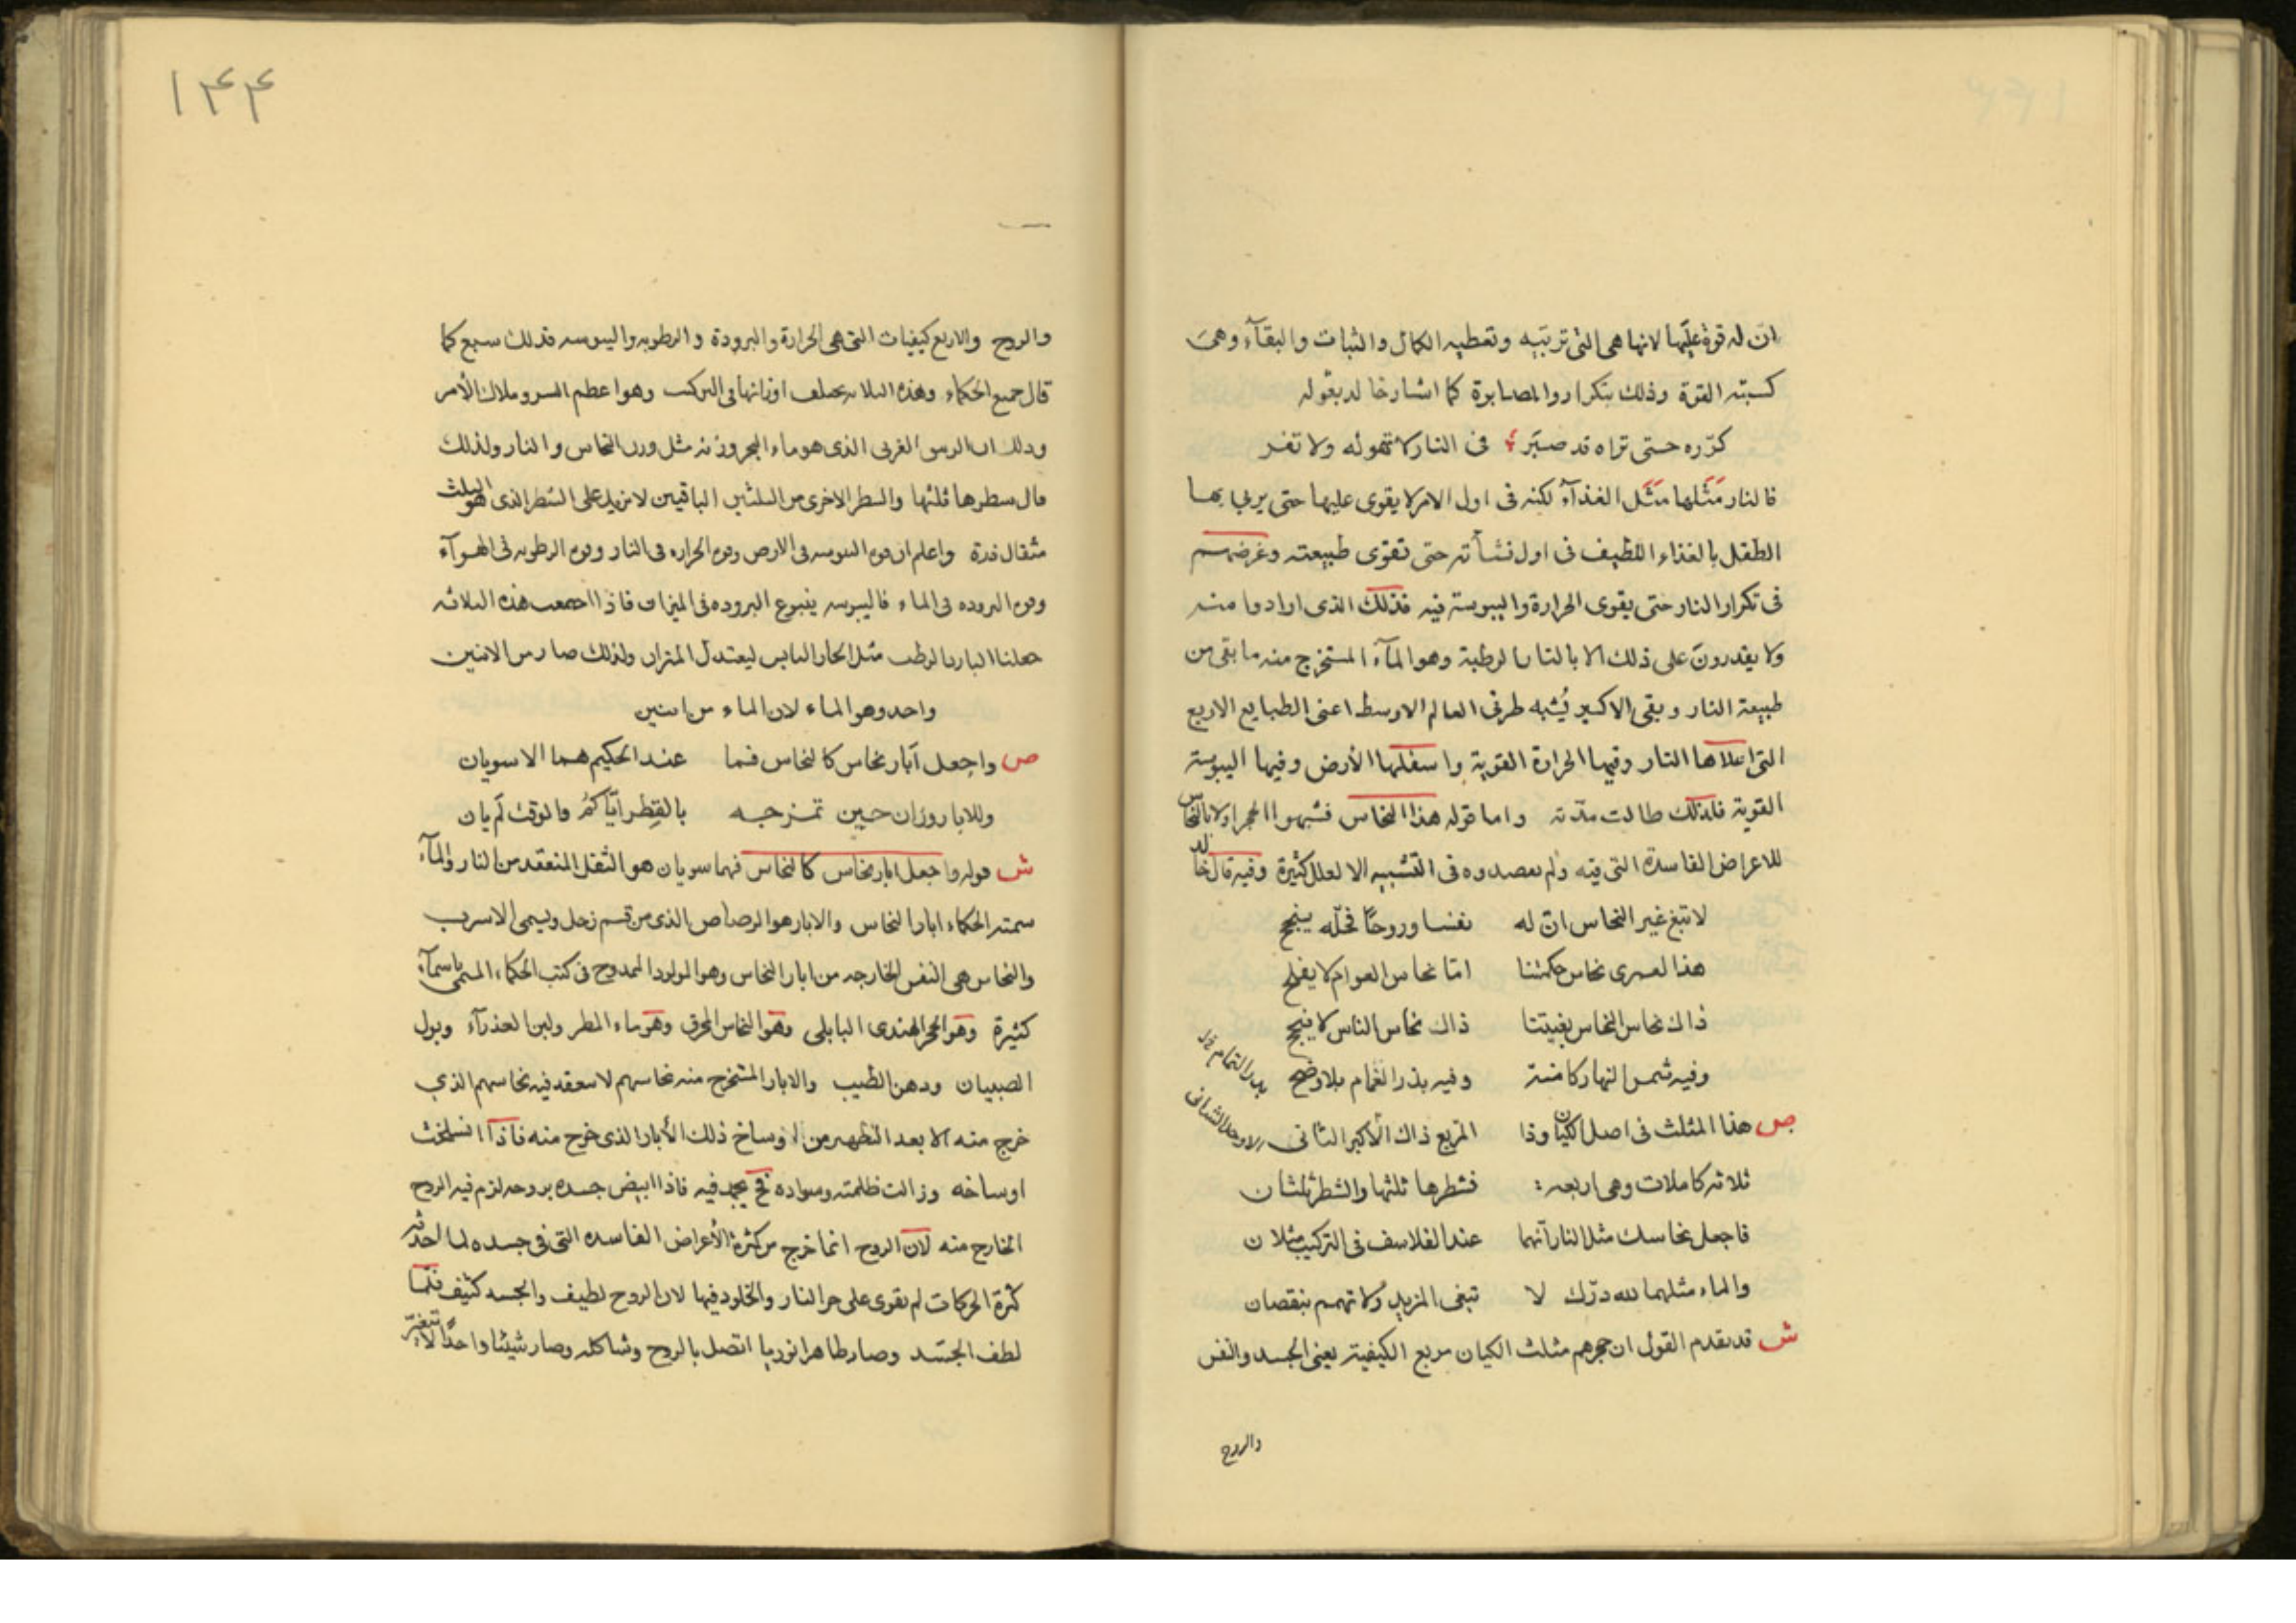 ان له قوة عليها لانها هى التى تربيه وتعطيه الكمال والثبات والبقآء وهى
كسبته القوة وذلك بتكرار والمصابرة كما اشار خالد بقوله
كرّره حتى تراه قد صبر ؛ فى النار لا تهوله ولا تفر
فالنار مَثَلها مَثَل الغذآء لكنه فى اول الامر لا يقوى عليها حتى يربى بها
الطفل بالغذاء اللطيف فى اول نشأته حتى تقوى طبيعته وغرضهم
فى تكرار النار حتى يقوى الحرارة واليبوسة فيه فذلك الذى ارادوا منه
ولا يقدرون على ذلك الا بالنار الرطبة وهو المآء المستخرج منه ما بقى من
طبيعة النار وبقى الاكسير يُشبه طرفى العالم الاوسط اعنى الطبايع الاربع
التى اعلاها النار وفيها الحرارة القوية واسفلها الأرض وفيها اليبوسة
القوية فلذلك طالت مدّته واما قوله هذا النحاس فشبهوا الحجر اولا بالنحاس
للاعراض الفاسدة التى فيه ولم يعصدوه فى التشبيه الا لعلل كثيرة وفيه قال خالد
لا تبغ غير النحاس انّ له نفسا وروحًا فحلّه ينجح
هذا لعمرى نحاس حكمتنا امّا نحاس العوام لا يفلح
ذاك نحاس النحاس بغيتنا ذاك نحاس الناس لا ينجح
وفيه شمس النهار كامنة وفيه بدر الغمام بلا وضح
بدر التمام
ص هذا المثلث فى اصل الكيان وذا المربع ذاك الأكبر الثانى
ثلاثه كاملات وهى اربعه : فشطرها ثلثها والشطر ثلثان
فاجعل نحاسك مثل النار انهما عند الفلاسف فى التركيب مثلان
والماء مثلهما لله درّك لا تبغى المزيد ولا تهمم بنقصان
ش قد تقدم القول ان حجرهم مثلث الكيان مربع الكيفية يعنى الجسد والنفس
والروح
١٤٤
والروح والاربع كيفيات التى هى الحرارة والبرودة والرطوبه واليبوسه فذلك سبع كما
قال جميع الحكماء وهذه الثلاثه يختلف اوزانها فى التركيب وهو اعظم السر وملاك الأمر
وذلك ان الغربى الذى هو ماء الحجر وزنه مثل وزن النحاس والنار ولذلك
قال شطرها ثلثها والشطر الاخرى من الثلثين الباقيين لا يزيد على الشطر الذى هو الثلث
مثقال ذرة واعلم ان قوة اليبوسه فى الارض وقوة الحراره فى النار وقوة الرطوبه فى الهوآء
وقوة البروده فى الماء فاليبوسه ينبوع البروده فى الميزان فاذا اجتمعت هذه الثلاثه
جعلنا البارد الرطب مثل الحار اليابس ليعتدل الميزان ولذلك صار من الاثنين
واحد وهو الماء لان الماء من اثنين
ص واجعل آبار نحاس كالنحاس فما عند الحكيم هما الا سويان
وللابار وزان حين تمزجه بالقِطر ايّاكمُ فالوقت لم يان
ش قوله واجعل ابار نحاس كالنحاس فهما سويان هو الثفل المنعقد من النار والمآء
سمته الحكماء ابار النحاس والابار هو الرصاص الذى من قسم زحل ويسمى الاسرب
والنحاس هى النفس الخارجه من ابار النحاس وهو المولود الممدوح فى كتب الحكماء المسمى باسمآء
كثيرة وهو الحجر الهندى البابلى وهو النحاس المحرق وهو ماء المطر ولبن العذرآء وبول
الصبيان ودهن الطيب والابار المستخرج منه نحاسهم لا ينعقد فيه نحاسهم الذى
خرج منه الا بعد التطهير من اوساخ ذلك الأبار الذى خرج منه فاذا انسلخت
اوساخه وزالت ظلمته وسواده فح يجمد فيه فاذا ابيض جسده بروحه لزم فيه الروح
الخارج منه لان الروح انما خرج من كثرة الأعراض الفاسده التى فى جسده لما احدثه
كثرة الحركات لم يقوى على حر النار والخلود فيها لان الروح لطيف والجسد كثيف فلما
لطف الجسَد وصار طاهرا نوريا اتصل بالروح وشاكله وصار شيئا واحدًا لا يتغير